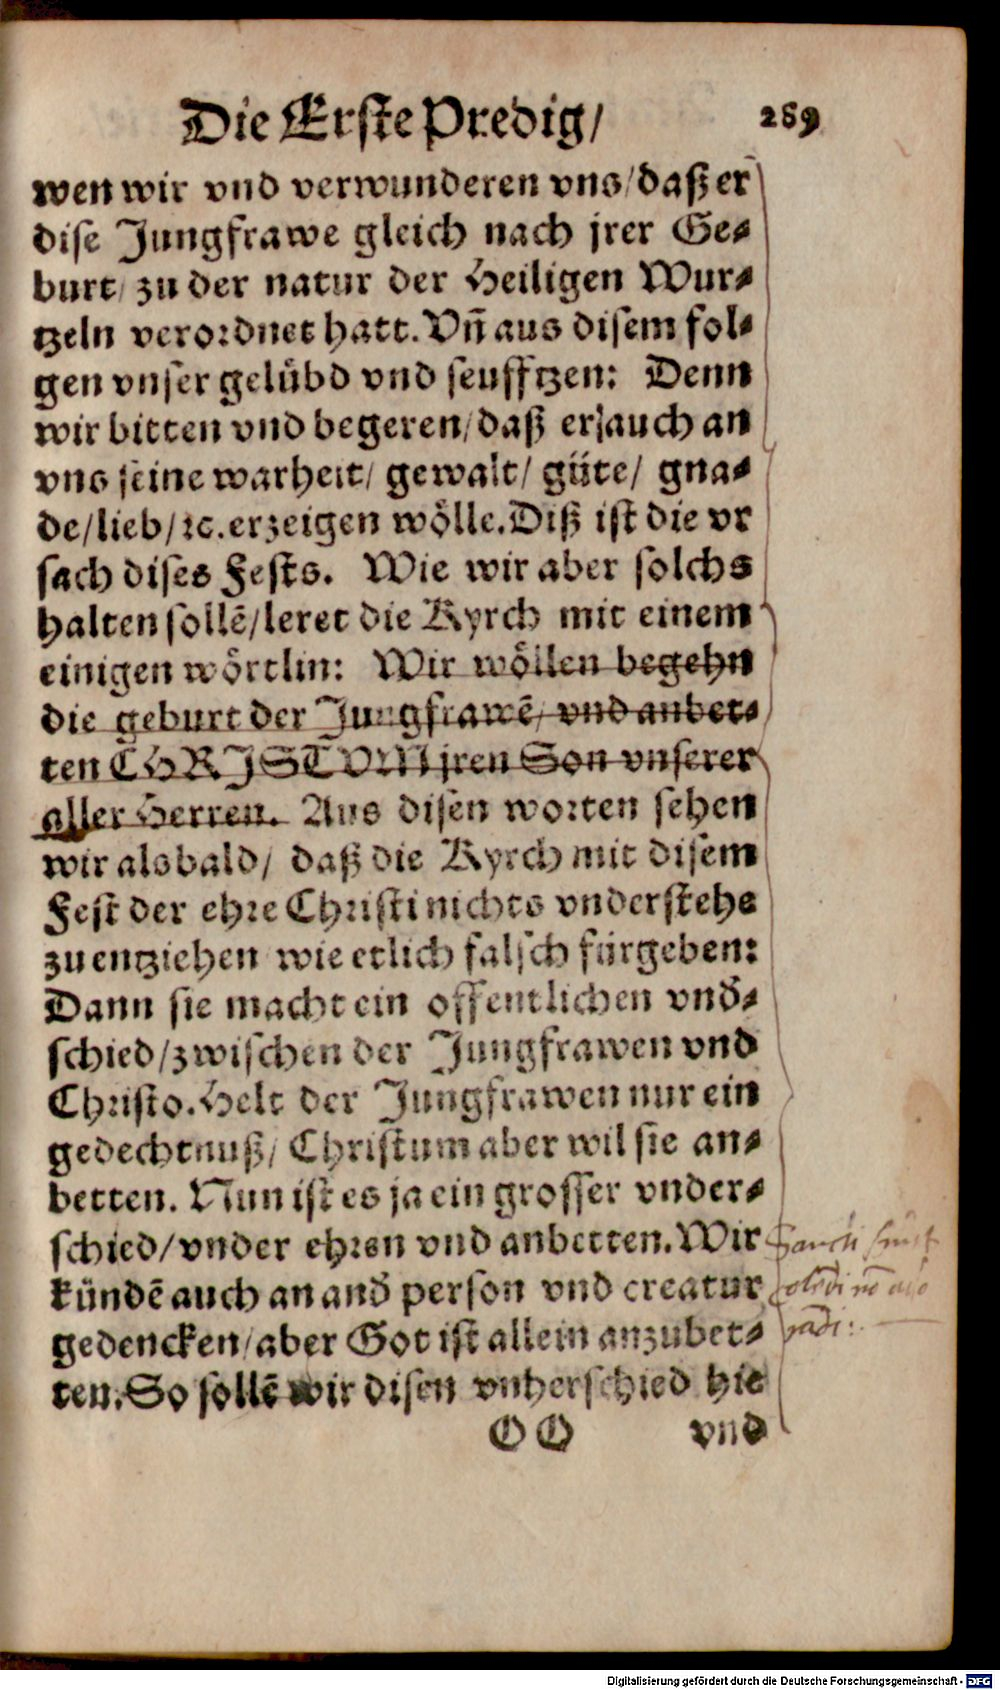 Die Erste Predig/ 289
wen wir vnd verwunderen vns/daß er
dise Jungfrawe gleich nach jrer Ge-
burt/ zu der natur der Heiligen Wur-
tzeln verordnet hatt. Vñ aus disem fol-
gen vnser gelübd vnd seufftzen: Denn
wir bitten vnd begeren/daß er auch an
vns seine warheit/ gewalt/ güte/ gna-
de/lieb/ꝛc. erzeigen wölle. Diß ist die vr
sach dises Fests. Wie wir aber solchs
halten sollẽ/leret die Kyrch mit einem
einigen wörtlin: Wir wöllen begehn
die geburt der Jungfrawẽ/ vnd anbet-
ten CHRISTVM jren Son vnserer
aller Herren. Aus disen worten sehen
wir alsbald/ daß die Kyrch mit disem
Fest der ehre Christi nichts vnderstehe
zu entziehen wie etlich falsch fürgeben:
Dann sie macht ein offentlichen vnd̃-
schied/zwischen der Jungfrawen vnd
Christo. Helt der Jungfrawen nur ein
gedechtnuß/ Christum aber wil sie an-
betten. Nun ist es ja ein grosser vnder-
schied/vnder ehren vnd anbetten. Wir
kündẽ auch an and̃ person vnd creatur
gedencken/aber Got ist allein anzubet-
ten. So sollẽ wir disen vnherschied hie
OO vnd
Sancti sunt
Digitalisierung gefördert durch die Deutsche Forschungsgemeinschaft - DFG